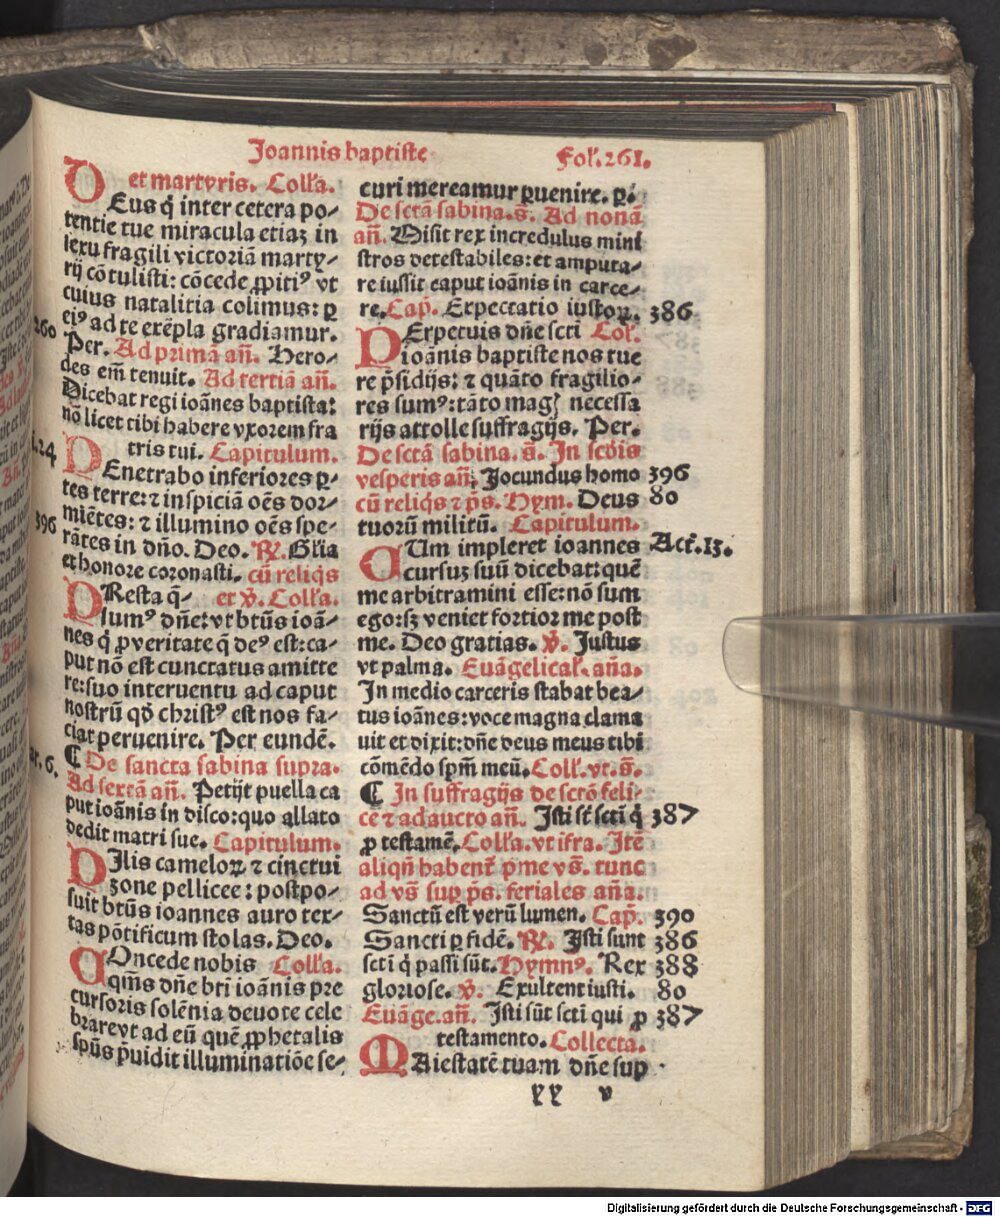 Joannis baptiste
Fol'. 261.
et martyris. Coll'a.
DEus q̄ inter cetera po-
tentie tue miracula etiaȝ in
sexu fragili victoriā marty-
rij cōtulisti: cōcede ꝓpitiꝰ vt
cuius natalitia colimus: ꝑ
eiꝰ ad te exēpla gradiamur.
Per. Ad primā añ. Hero-
des em̄ tenuit. Ad tertiā añ.
Dicebat regi ioānes baptista:
nō licet tibi habere vxorem fra
tris tui. Capitulum.
PEnetrabo inferiores ꝑ-
tes terre: ⁊ inspiciā oēs dor-
miētes: ⁊ illumino oēs spe-
rātes in dño. Deo. ℟. Gl'ia
et honore coronasti. cū reliq̄s
PResta q̄- et ℣. Coll'a.
sumꝰ dñe: vt btūs ioā-
nes q̄ ꝓ veritate q̄ deꝰ est: ca-
put nō est cunctatus amitte
re: suo interuentu ad caput
nostrū qđ christꝰ est nos fa-
ciat peruenire. Per eundē.
¶ De sancta sabina supra.
Ad sextā añ. Petijt puella ca
put ioānis in disco: quo allato
dedit matri sue. Capitulum.
PIlis cameloꝝ ⁊ cinctui
zone pellicee: postpo-
suit btūs ioannes auro tex-
tas pōtificum stolas. Deo.
COncede nobis Coll'a.
qm̄s dñe bt̄i ioānis pre
cursoris solēnia deuote cele
brare vt ad eū quē ꝓphetalis
spūs p̄uidit illuminatiōe se-
curi mereamur ꝑuenire. ꝑ.
De sctā sabina. s̄. Ad nonā
añ. Misit rex incredulus mini
stros detestabiles: et amputa-
re iussit caput ioānis in carce-
re. Cap̄. Expectatio iustoꝝ. 386
PErpetuis dñe scti Col'.
ioānis baptiste nos tue
re p̄sidijs: ⁊ quāto fragilio-
res sumꝰ: tāto maḡ necessa
rijs attolle suffragijs. Per.
De sctā sabina. s̄. In scďis
vesperis añ. Jocundus homo 396
cū reliq̄s ⁊ p̄s. Hym. Deus 80
tuorū militū. Capitulum.
CUm impleret ioannes Act'. 13.
cursuȝ suū dicebat: quē
me arbitramini esse: nō sum
ego: sȝ veniet fortior me post
me. Deo gratias. ℣. Justus
vt palma. Euāgelical'. aña.
In medio carceris stabat bea-
tus ioānes: voce magna clama
uit et dixit: dñe deus meus tibi
cōmēdo spm̄ meū. Coll'. vt. s̄.
¶ In suffragijs de sctō feli-
ce ⁊ adaucto añ. Isti st̄ scti q̄ 387
ꝓ testamē. Coll'a. vt ifra. Itē
aliqñ habent̄ p̄me vs̄. tunc
ad vs̄ sup p̄s. feriales aña.
Sanctū est verū lumen. Cap̄. 390
Sancti ꝑ fidē. ℟. Isti sunt 386
scti q̄ passi sūt. Hymnꝰ. Rex 388
gloriose. ℣. Exultent iusti. 80
Euāge. añ. Isti sūt scti qui ꝓ 387
testamento. Collecta.
MAiestatē tuam dñe sup
xx v
260
396
Digitalisierung gefördert durch die Deutsche Forschungsgemeinschaft - DFG